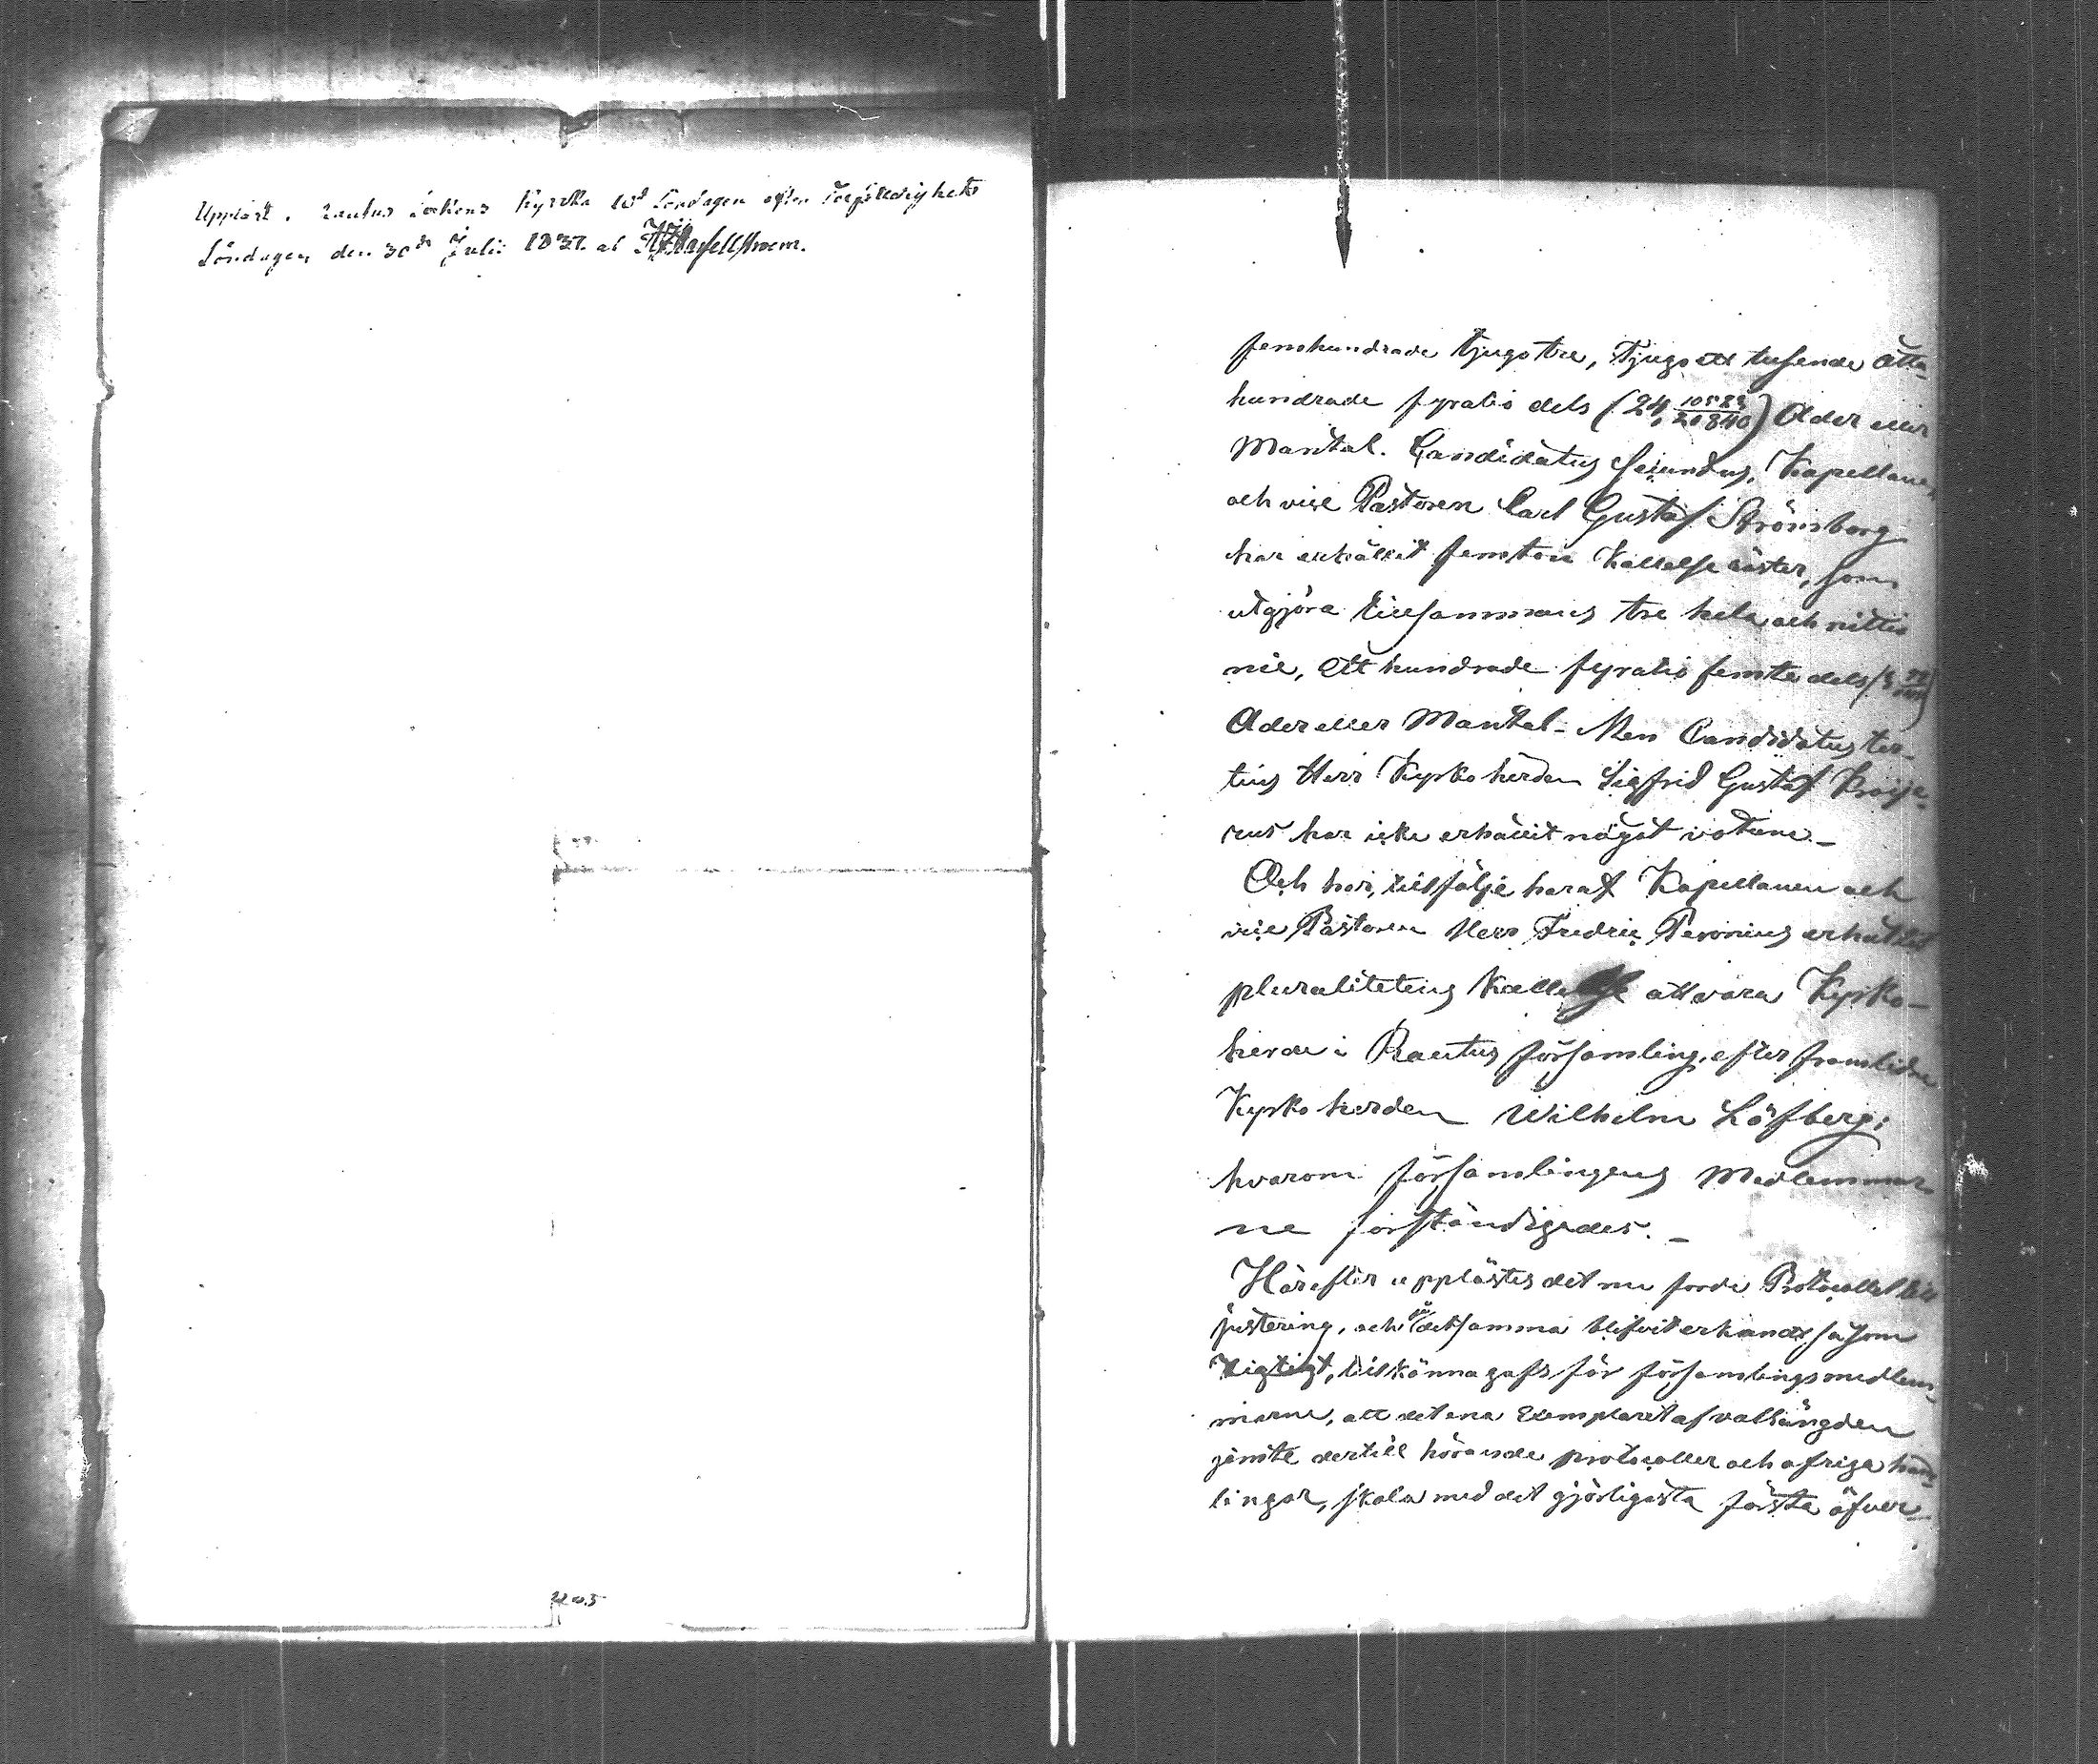 Uppläst i Rautus Sockens Kyrka 10d Söndagen efter Trefaldighets
Söndagen den 30de Julii 1837. af
femhundrade tjugotre, Tjugoett tusende åtta
hundrade fyratio dels (24, 10523/21840) Oder eller
Mantal. Candidatus secundus, Kapellanen
och vice Pastoren Carl Gustaf Strömborg
har erhållit femton Kallelse röster, som
utgjöra tillsammans tre hela och nittio
nie, Ett hundrade fyratio femte dels (3 99/145)
Oder eller Mantal - Men Candidatus ter-
tius Herr Kyrkoherden Sigfrid Gustaf
rus har icke erhållit något votum. -
Och har, till följe häraf Kapellanen och
vice Pastoren Herr Fredric Peronius erhållit
pluralitetens Kallelse att vara Kyrko-
herde i Rautus församling, efter framlidne
Kyrkoherden Wilhelm Löfberg;
hvarom församlingens Medlemmar
ne förständigades. -
Härefter upplästes det nu förda Protocollet till
justering, och då detsamma blifvit erkändt såsom
riktigt, tillkännagafs för församlingsmedlem
marne, att det ena Exemplaret af vallängden
jemte dertill hörande protocoller och öfriga hand
lingar, skola med det gjörligaste första öfver-